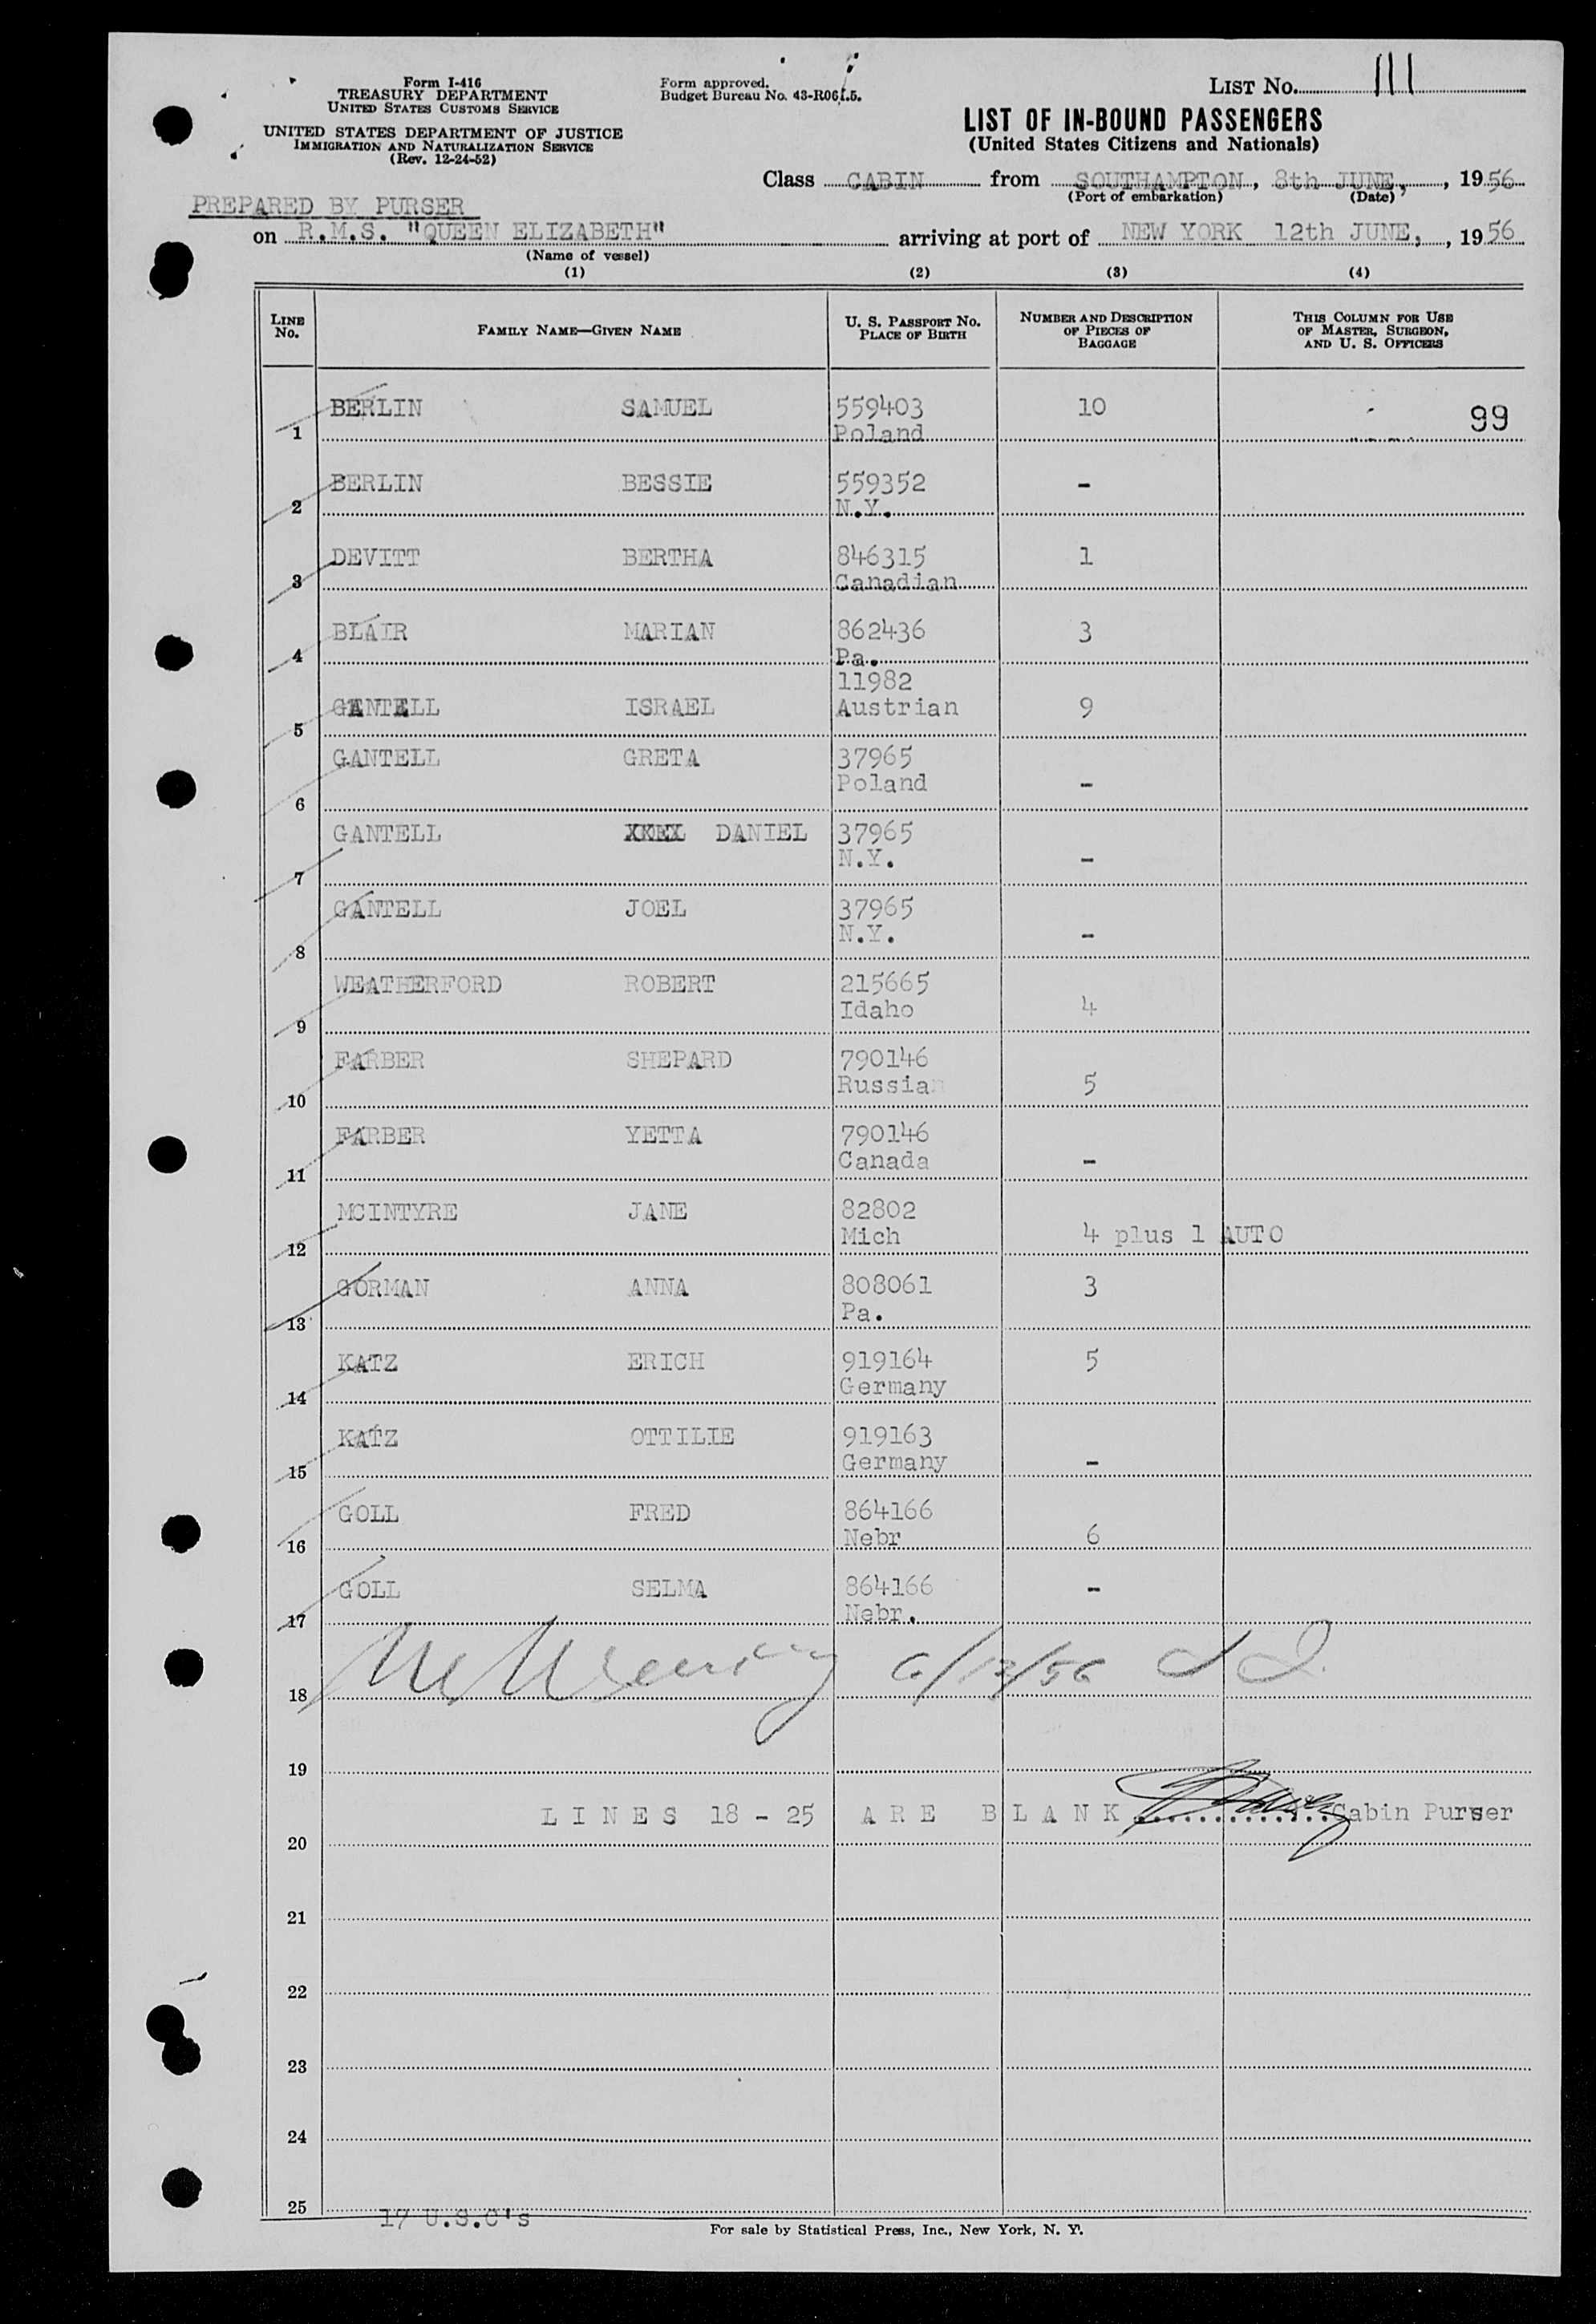 Form I-416
TREASURY DEPARTMENT
UNITED STATES CUSTOMS SERVICE
UNITED STATES DEPARTMENT OF JUSTICE
IMMIGRATION AND NATURALIZATION SERVICE
(Rev. 12-24-52)
Form approved.
Budget Bureau No. 43-R061.5.
LIST No. 111
LIST OF IN-BOUND PASSENGERS
(United States Citizens and Nationals)
Class CABIN from SOUTHAMPTON, 8th JUNE, , 1956
(Port of embarkation) (Date)
PREPARED BY PURSER
on R.M.S. "QUEEN ELIZABETH" arriving at port of NEW YORK 12th JUNE, , 1956
(Name of vessel)
(1) (2) (3) (4)
LINE No. FAMILY NAME—GIVEN NAME U. S. PASSPORT No. PLACE OF BIRTH NUMBER AND DESCRIPTION OF PIECES OF BAGGAGE THIS COLUMN FOR USE OF MASTER, SURGEON, AND U. S. OFFICERS
BERLIN SAMUEL 559403 10 99
1 Poland
BERLIN BESSIE 559352 -
2 N.Y.
DEVITT BERTHA 846315 1
3 Canadian
BLAIR MARIAN 862436 3
4 Pa.
11982
GANTELL ISRAEL Austrian 9
5
GANTELL GRETA 37965
Poland -
6
GANTELL DANIEL 37965
N.Y. -
7
GANTELL JOEL 37965
N.Y. -
8
WEATHERFORD ROBERT 215665
Idaho 4
9
FARBER SHEPARD 790146
Russian 5
10
FARBER YETTA 790146
Canada -
11
MCINTYRE JANE 82802
Mich 4 plus 1 AUTO
12
GORMAN ANNA 808061 3
Pa.
13
KATZ ERICH 919164 5
Germany
14
KATZ OTTILIE 919163
Germany -
15
GOLL FRED 864166
Nebr 6
16
GOLL SELMA 864166 -
Nebr.
17
6/13/56
18
19
LINES 18 - 25 ARE BLANK Cabin Purser
20
21
22
23
24
25
17 U.S.C's
For sale by Statistical Press, Inc., New York, N. Y.